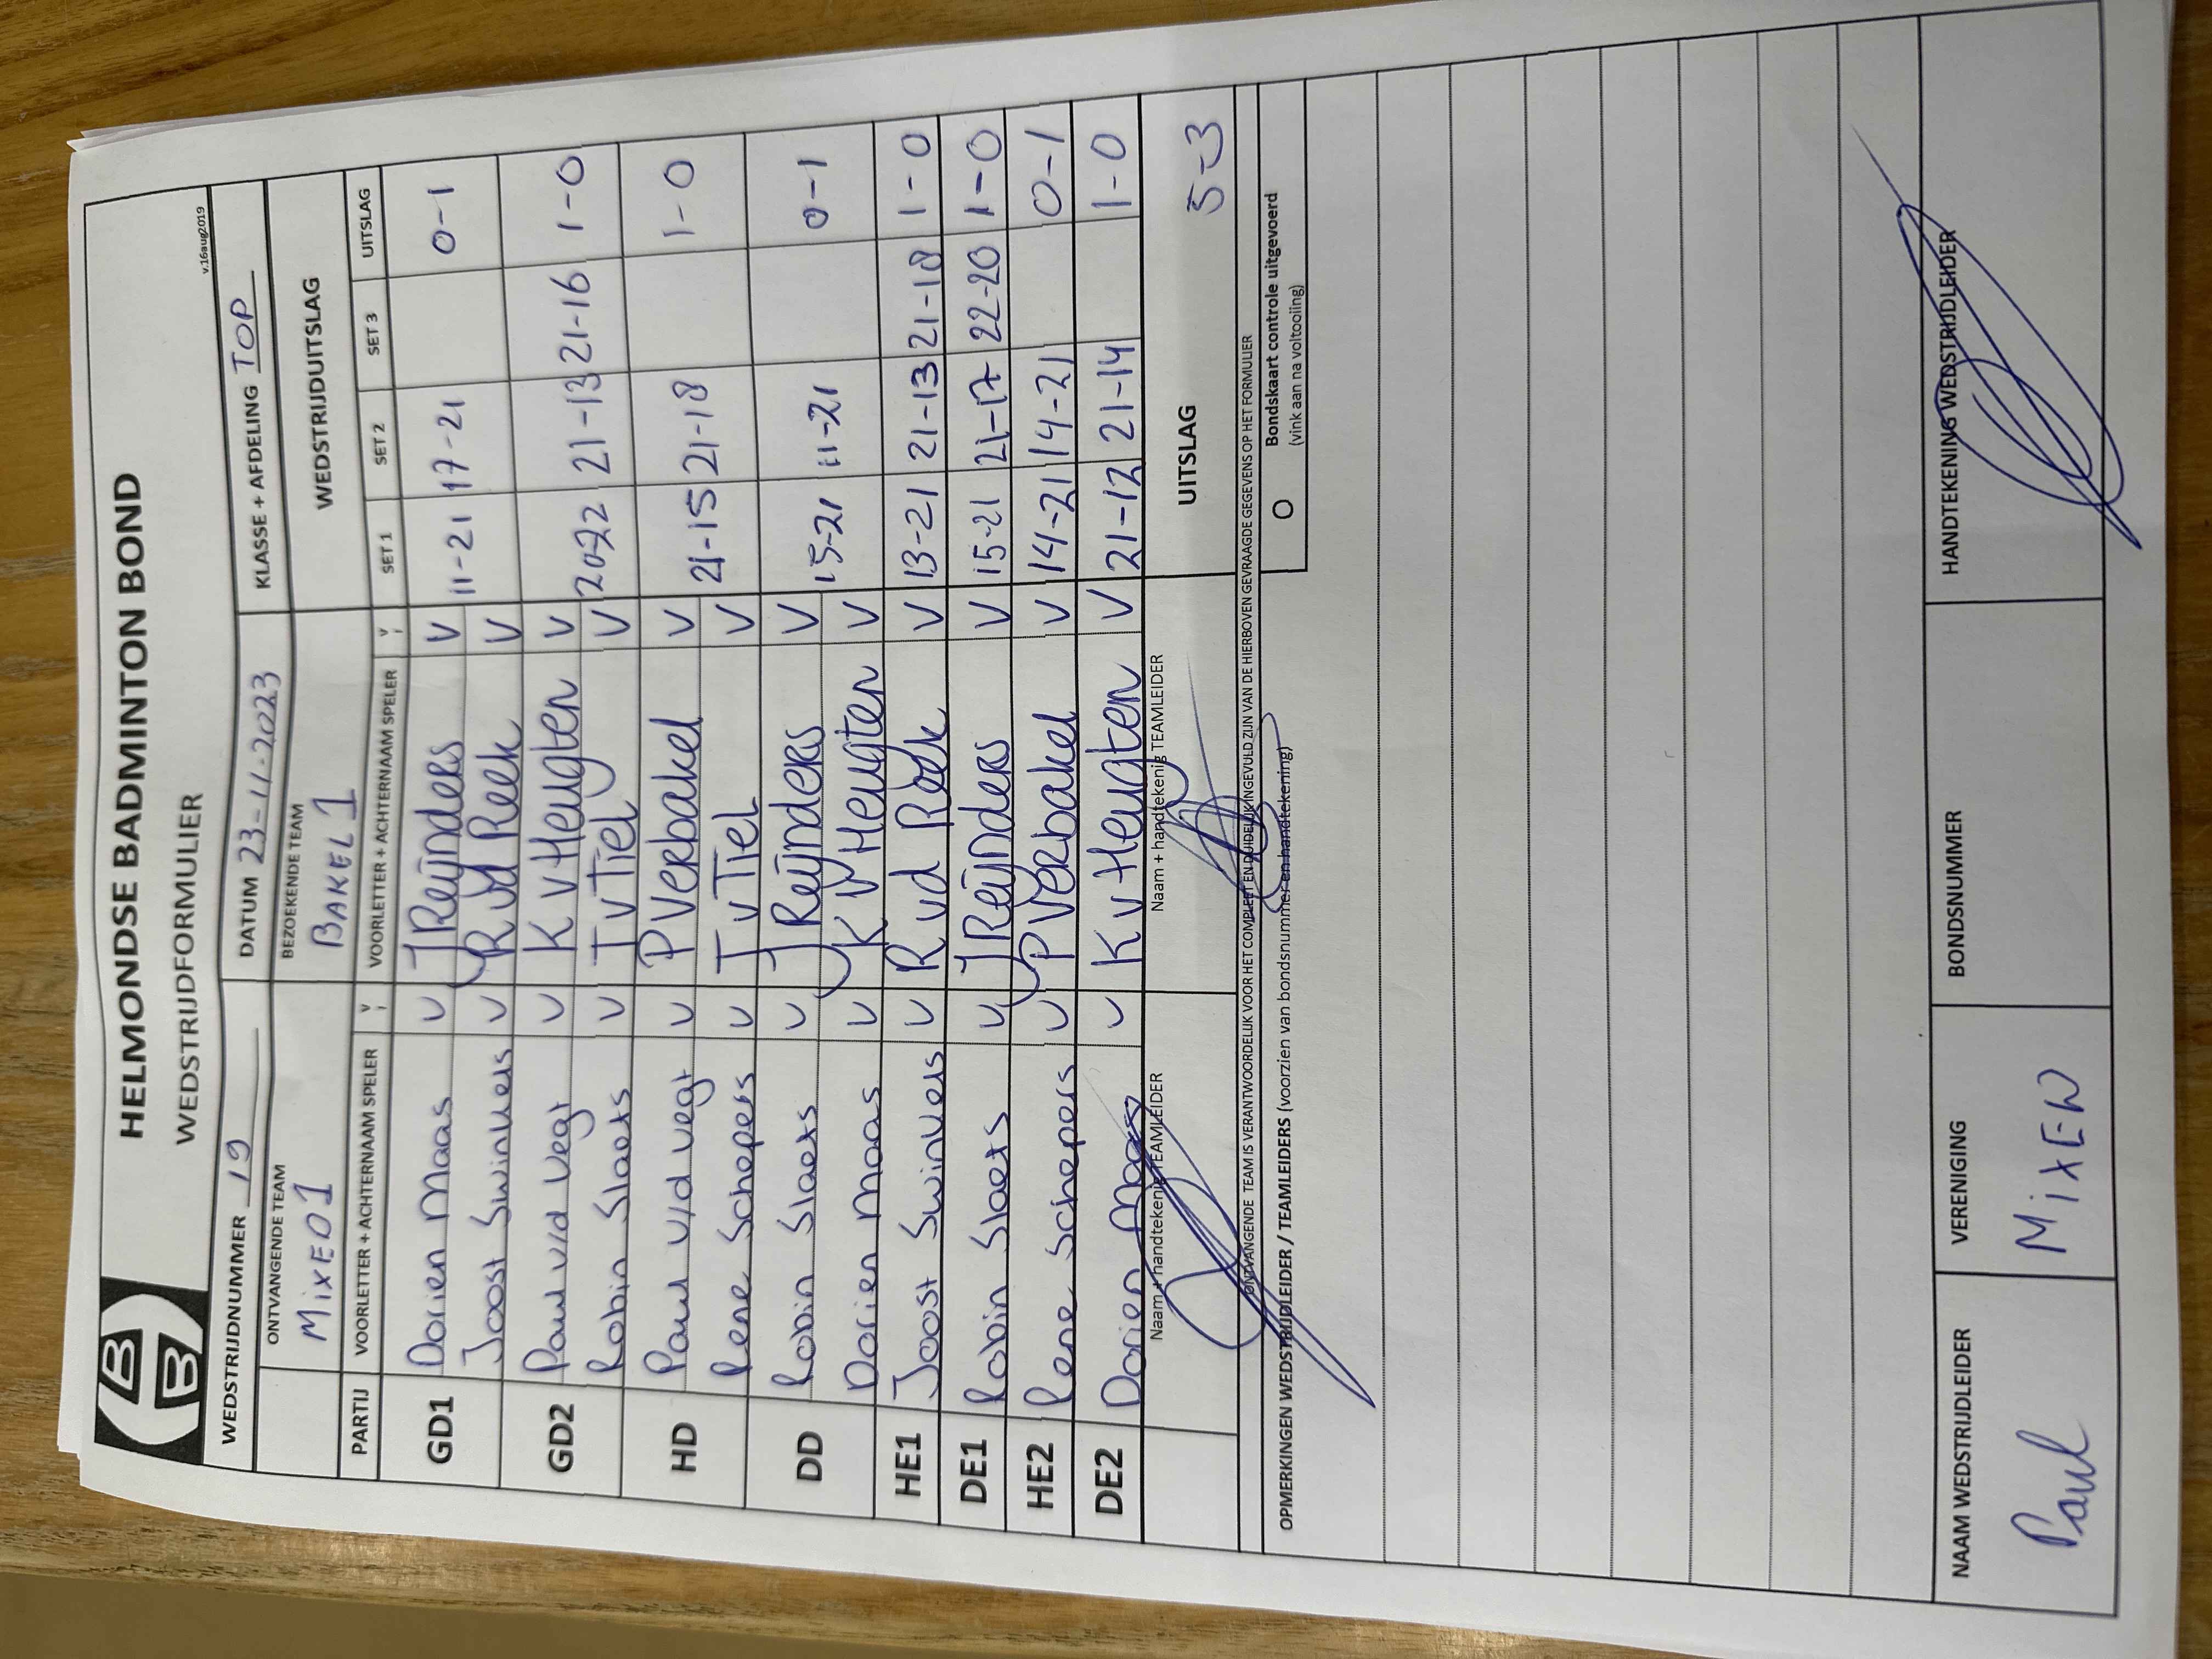 HELMONDSE BADMINTON BOND
WEDSTRIJDFORMULIER
v.16aug2019
WEDSTRIJDNUMMER 19 DATUM 23-11-2023 KLASSE + AFDELING TOP
ONTVANGENDE TEAM BEZOEKENDE TEAM WEDSTRIJDUITSLAG
MIXED1 BAKEL 1
PARTIJ VOORLETTER + ACHTERNAAM SPELER V VOORLETTER + ACHTERNAAM SPELER V SET 1 SET 2 SET 3 UITSLAG
GD1 Dorien Maas V J Reijnders V 11-21 17-21 0-1
Joost Swinkels V R vd Reek V
GD2 Paul v/d Vegt V K v Heugten V 20-22 21-13 21-16 1-0
Robin Slaets V T v Tiel V
HD Paul v/d Vegt V P Verbakel V 21-15 21-18 1-0
Rene Schepers V T v Tiel V
DD Robin Slaets V J Reijnders V 15-21 11-21 0-1
Dorien Maas V K v Heugten V
HE1 Joost Swinkels V R vd Reek V 13-21 21-13 21-18 1-0
DE1 Robin Slaets V J Reijnders V 15-21 21-17 22-20 1-0
HE2 Rene Schepers V P Verbakel V 14-21 14-21 0-1
DE2 Dorien Maas V K v Heugten V 21-12 21-14 1-0
Naam + handtekenig TEAMLEIDER Naam + handtekenig TEAMLEIDER UITSLAG 5-3
ONTVANGENDE TEAM IS VERANTWOORDELIJK VOOR HET COMPLEET EN DUIDELIJK INGEVULD ZIJN VAN DE HIERBOVEN GEVRAAGDE GEGEVENS OP HET FORMULIER
OPMERKINGEN WEDSTRIJDLEIDER / TEAMLEIDERS (voorzien van bondsnummer en handtekening)
O Bondskaart controle uitgevoerd
(vink aan na voltooiing)
NAAM WEDSTRIJDLEIDER VERENIGING BONDSNUMMER HANDTEKENING WEDSTRIJDLEIDER
Paul MIXED